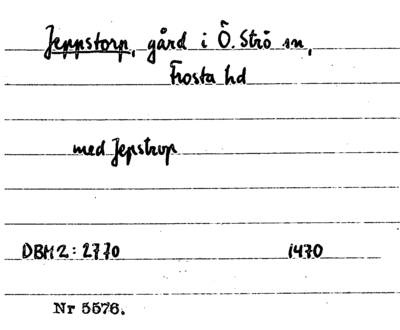 Jeppstorp, gård i Ö. Strö sn,
Frosta hd
med Jepstrup
DBM2: 2770 1470
Nr 5576.